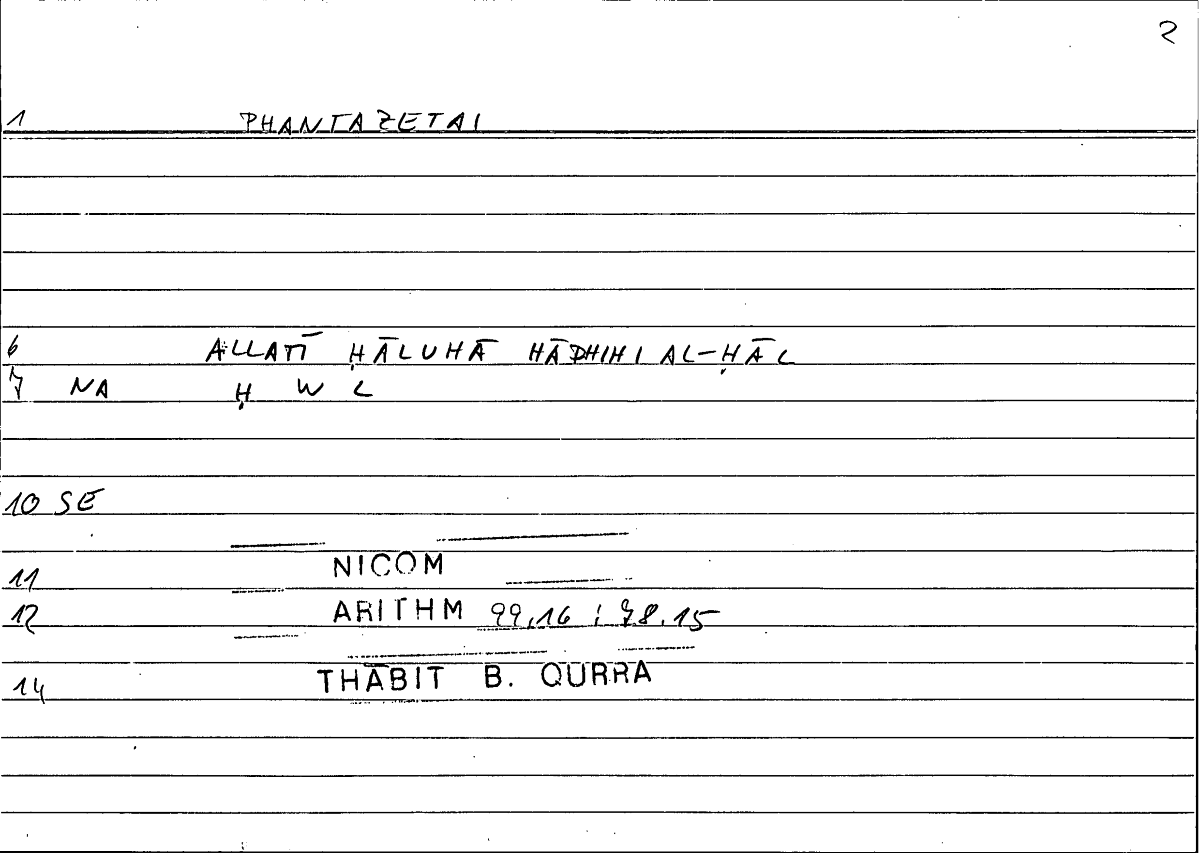 2
1 PHANTAZETAI
6 ALLATĪ ḤĀLUHĀ HĀDHIHI AL-ḤĀL
7 NA Ḥ W L
10 SE
11 NICOM
12 ARITHM 99,16 ; 78.15
14 THĀBIT B. QURRA